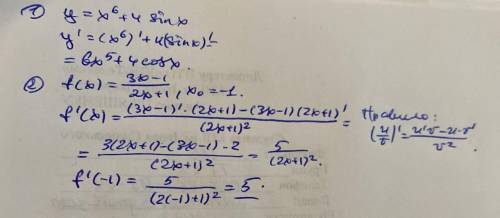 ① y = x⁶ + 4 sin x
y' = (x⁶)' + 4(sin x)' =
= 6x⁵ + 4 cos x.
② f(x) = (3x-1)/(2x+1), x₀ = -1.
f'(x) = ((3x-1)'·(2x+1)-(3x-1)(2x+1)')/(2x+1)² =
Правило:
(u/v)' = (u'v-u·v')/v².
= (3(2x+1)-(3x-1)·2)/(2x+1)² = 5/(2x+1)².
f'(-1) = 5/(2(-1)+1)² = 5.